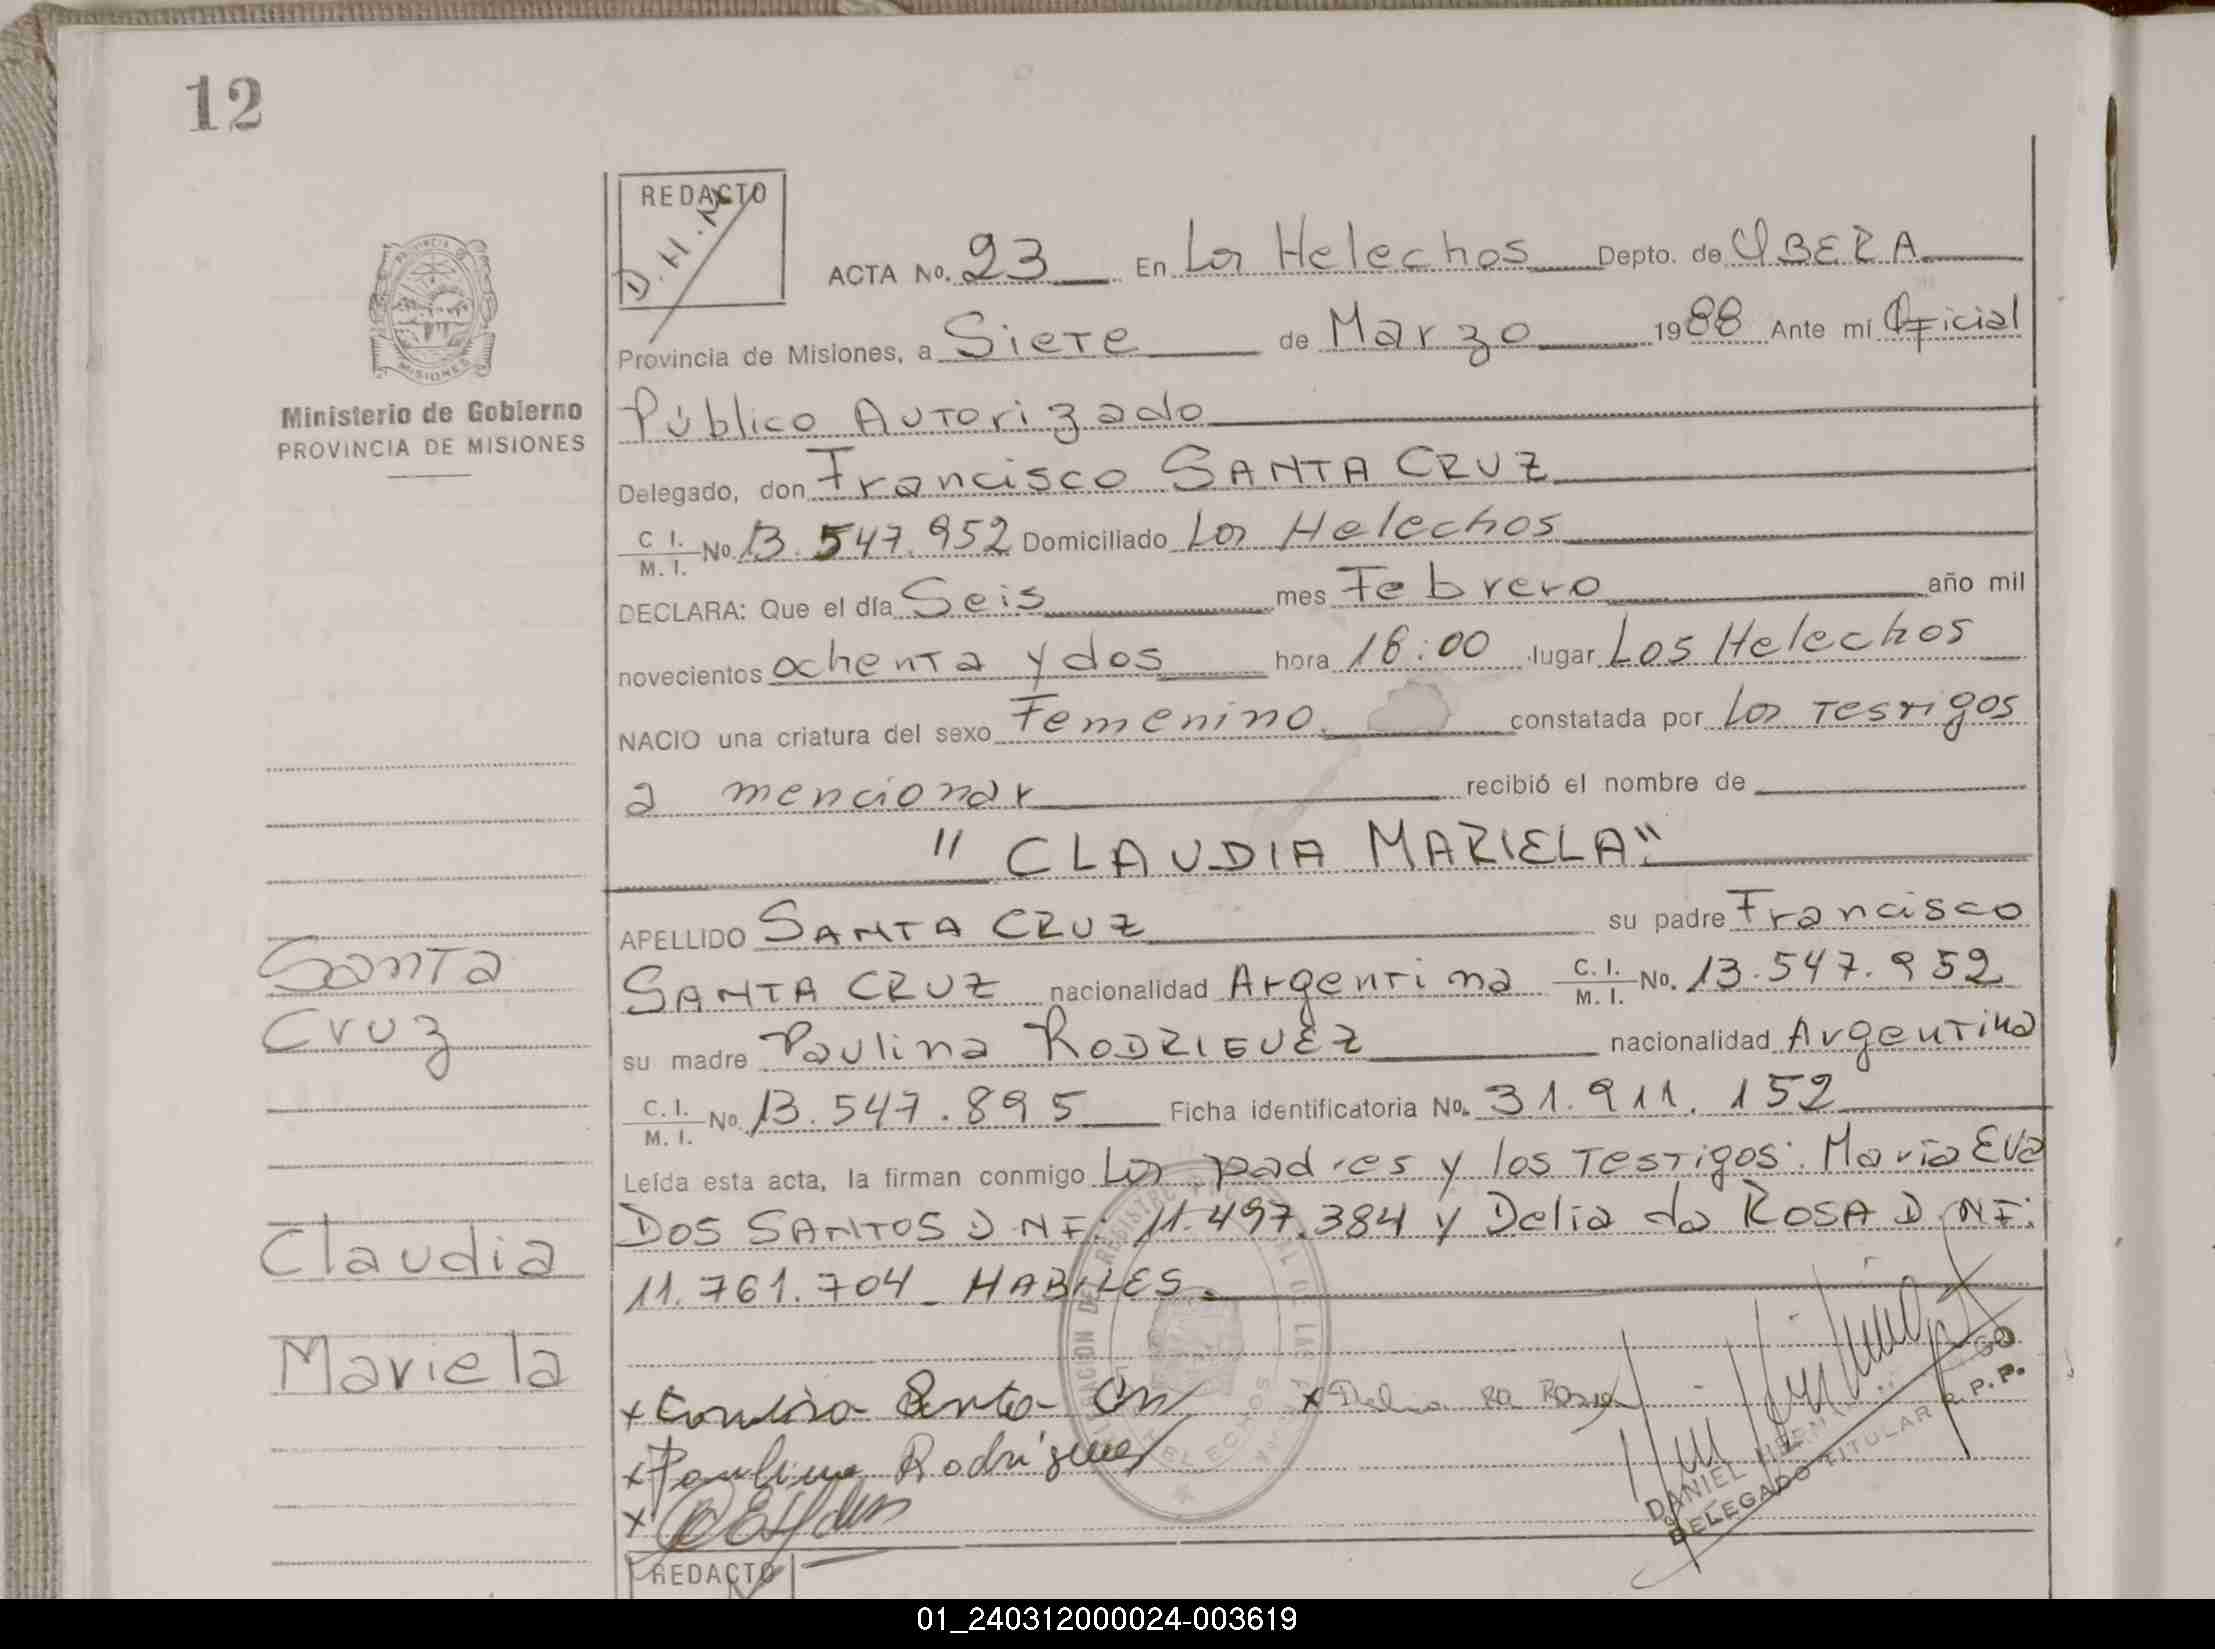 12
REDACTO
D.H.N
ACTA No. 23 En Los Helechos Depto. de OBERA
Provincia de Misiones, a Siete de Marzo 1988 Ante mí Oficial
Público Autorizado
Delegado, don Francisco SANTA CRUZ
C I. M. I. No. 13.547.952 Domiciliado Los Helechos
DECLARA: Que el día Seis mes Febrero año mil
novecientos ochenta y dos hora 18:00 lugar Los Helechos
NACIO una criatura del sexo Femenino. constatada por Los Testigos
a mencionar recibió el nombre de
"CLAUDIA MARIELA".
APELLIDO SANTA CRUZ su padre Francisco
SANTA CRUZ nacionalidad Argentina C. I. M. I. No. 13.547.952
su madre Paulina RODRIGUEZ nacionalidad Argentina
C. I. M. I. No. 13.547.895 Ficha identificatoria No. 31.911.152
Leída esta acta, la firman conmigo Los padres y los Testigos: María Eva
DOS SANTOS D NI: 11.497.384 y Delia da ROSA D.NI:
11.761.704 - HABILES.
Ministerio de Gobierno
PROVINCIA DE MISIONES
Santa
Cruz
Claudia
Mariela
x Santa
x Delia
x Paulina Rodriguez
x
DANIEL
DELEGADO TITULAR R.P.P.
REDACTO
01_240312000024-003619